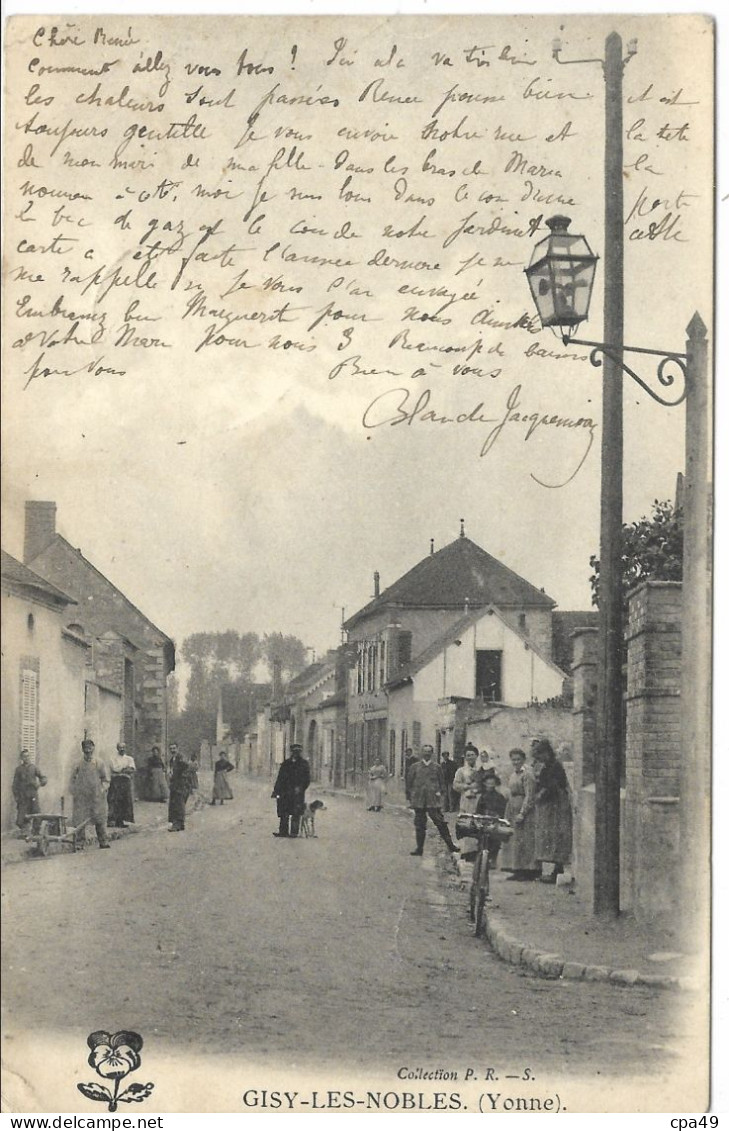 Chère Renée
Comment allez vous tous! Ici cela va très bien
les chaleurs sont passées Renée pousse bien et est
toujours gentille Je vous envoie Notre rue et la tête
de mon mari de ma fille dans les bras de Maria la
nouveau à côté, moi je suis tous dans le coin d'une porte
le bec de gaz est le coin de notre Jardin et cette
carte a été faite l'année dernière je ne
me rappelle si je vous l'ai envoyée
Embrassez bien Marguerite pour nous ainsi
votre Mari pour nous 3 Beaucoup de baisers
pour vous Bien à vous
Blanche
TABAC
Collection P. R. — S.
GISY-LES-NOBLES. (Yonne).
cpa49